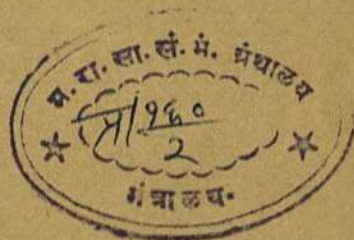 म. रा. सा. सं. मं. ग्रंथालय
१६०
२
मंत्रालय.